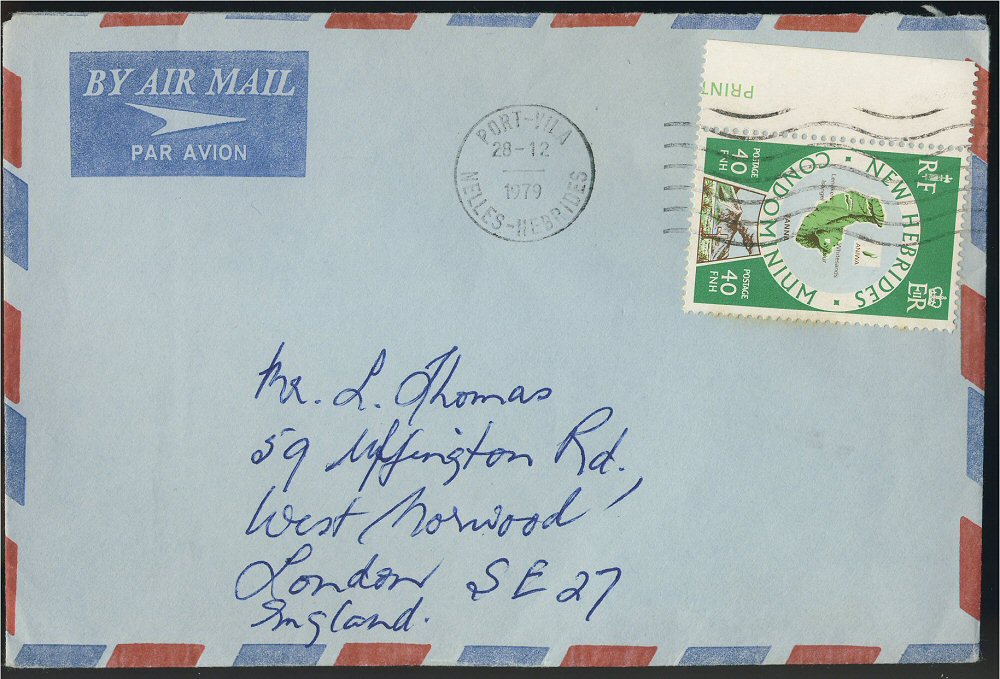 BY AIR MAIL
PAR AVION
PORT-VILA
28-12
1979
NELLES-HEBRIDES
PRINT
RF
NEW HEBRIDES
CONDOMINIUM
EIIR
POSTAGE
40
FNH
POSTAGE
40
FNH
TANNA
ANIWA
Mr. L. Thomas
59 Uffington Rd.
West Norwood,
London SE27
England.